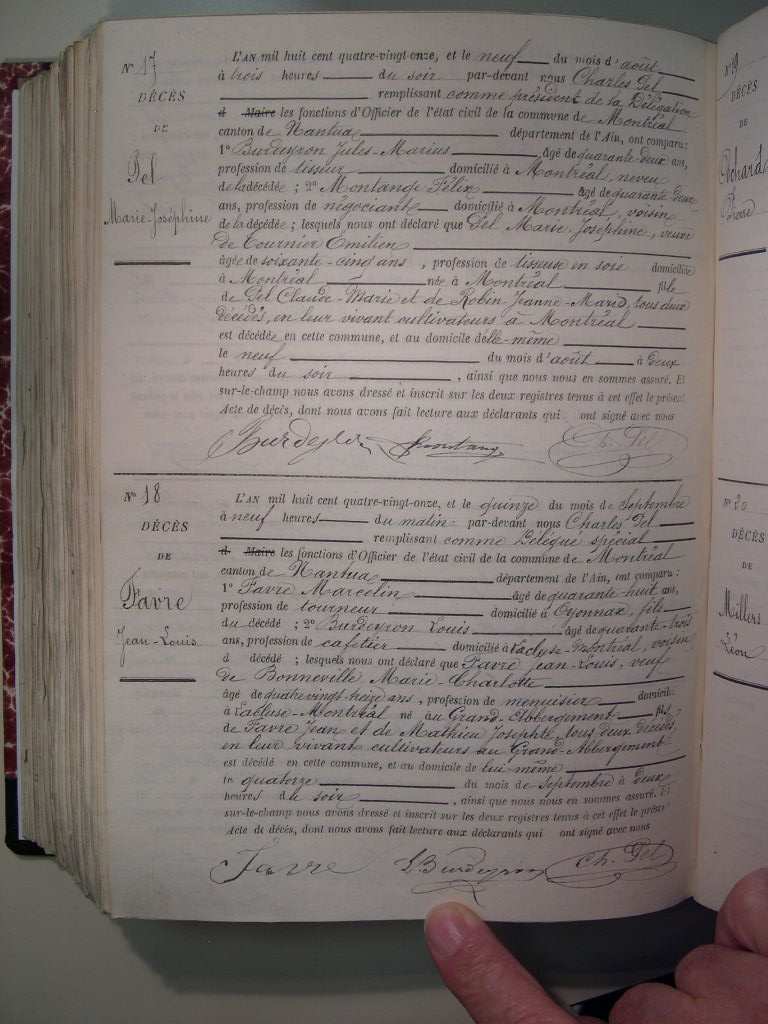 N° 17
DÉCÈS
DE
Pel
Marie-Joséphine
L'AN mil huit cent quatre-vingt-onze, et le neuf du mois d'août
à trois heures du soir par-devant nous Charles Pel
remplissant comme président de la Délégation
d Maire les fonctions d'Officier de l'état civil de la commune de Montréal
canton de Nantua département de l'Ain, ont comparu :
1° Burdeyron Jules-Marius âgé de quarante-deux ans,
profession de tisseur domicilié à Montréal, neveu
de la décédée ; 2° Montange Félix âgé de quarante deux
ans, profession de négociant domicilié à Montréal, voisin
de la décédée ; lesquels nous ont déclaré que Pel Marie Joséphine, veuve
de Tournier Emilien
âgée de soixante-cinq ans, profession de tisseuse en soie domiciliée
à Montréal née à Montréal fille
de Pel Claude-Marie et de Robin Jeanne-Marie, tous deux
décédés, en leur vivant cultivateurs à Montréal
est décédée en cette commune, et au domicile d'elle-même
le neuf du mois d'août à deux
heures du soir, ainsi que nous nous en sommes assuré. Et
sur-le-champ nous avons dressé et inscrit sur les deux registres tenus à cet effet le présent
Acte de décès, dont nous avons fait lecture aux déclarants qui ont signé avec nous
Burdeyron Montange Ch. Pel
N° 18
DÉCÈS
DE
Favre
Jean-Louis
L'AN mil huit cent quatre-vingt-onze, et le quinze du mois de Septembre
à neuf heures du matin par-devant nous Charles Pel
remplissant comme Délégué spécial
d Maire les fonctions d'Officier de l'état civil de la commune de Montréal
canton de Nantua département de l'Ain, ont comparu :
1° Favre Marcelin âgé de quarante huit ans,
profession de tourneur domicilié à Oyonnax, fils
du décédé ; 2° Burdeyron Louis âgé de quarante-trois
ans, profession de cafetier domicilié à Lacluse-Montréal, voisin
d décédé ; lesquels nous ont déclaré que Favre Jean-Louis, veuf
de Bonneville Marie-Charlotte
âgé de quatre vingt-seize ans, profession de menuisier domicilié
à Lacluse-Montréal né au Grand-Abbergement fils
de Favre Jean et de Mathieu Josephte, tous deux décédés,
en leur vivant cultivateurs au Grand-Abbergement
est décédé en cette commune, et au domicile de lui même
le quatorze du mois de Septembre à deux
heures du soir, ainsi que nous nous en sommes assuré. Et
sur-le-champ nous avons dressé et inscrit sur les deux registres tenus à cet effet le présent
Acte de décès, dont nous avons fait lecture aux déclarants qui ont signé avec nous
Favre L. Burdeyron Ch. Pel
N° 19
DÉCÈS
DE
N° 20
DÉCÈS
DE
Millers
Léon